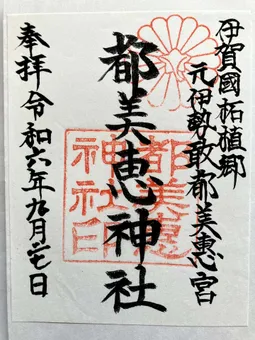 伊賀國柘植郷
元伊勢敢都美恵宮
都美恵神社
奉拝 令和六年九月廿七日
都美恵
神社印